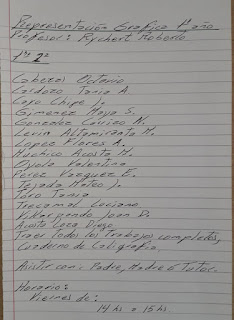 Representación Gráfica 1° año
Profesor: Fychert Roberto
1° 2°
Cabezas Octavio
Cardozo Tania A.
Caro Chipe J.
Gimenez Maya S.
Gonzalez Carrizo N.
Leria Altamiranta M.
Lopez Flores A.
Muchico Acosta M.
Oyola Valentina
Perez Vazquez E.
Tejada Mateo J.
Toro Tania
Trecamal Luciana
Villagrando Joan D.
Acosta Diego
Traer todos los trabajos completos,
Cuaderno de Caligrafía.
Asistir con: Padre, Madre ó Tutor.
Horario:
Viernes de:
14 hs a 15 hs